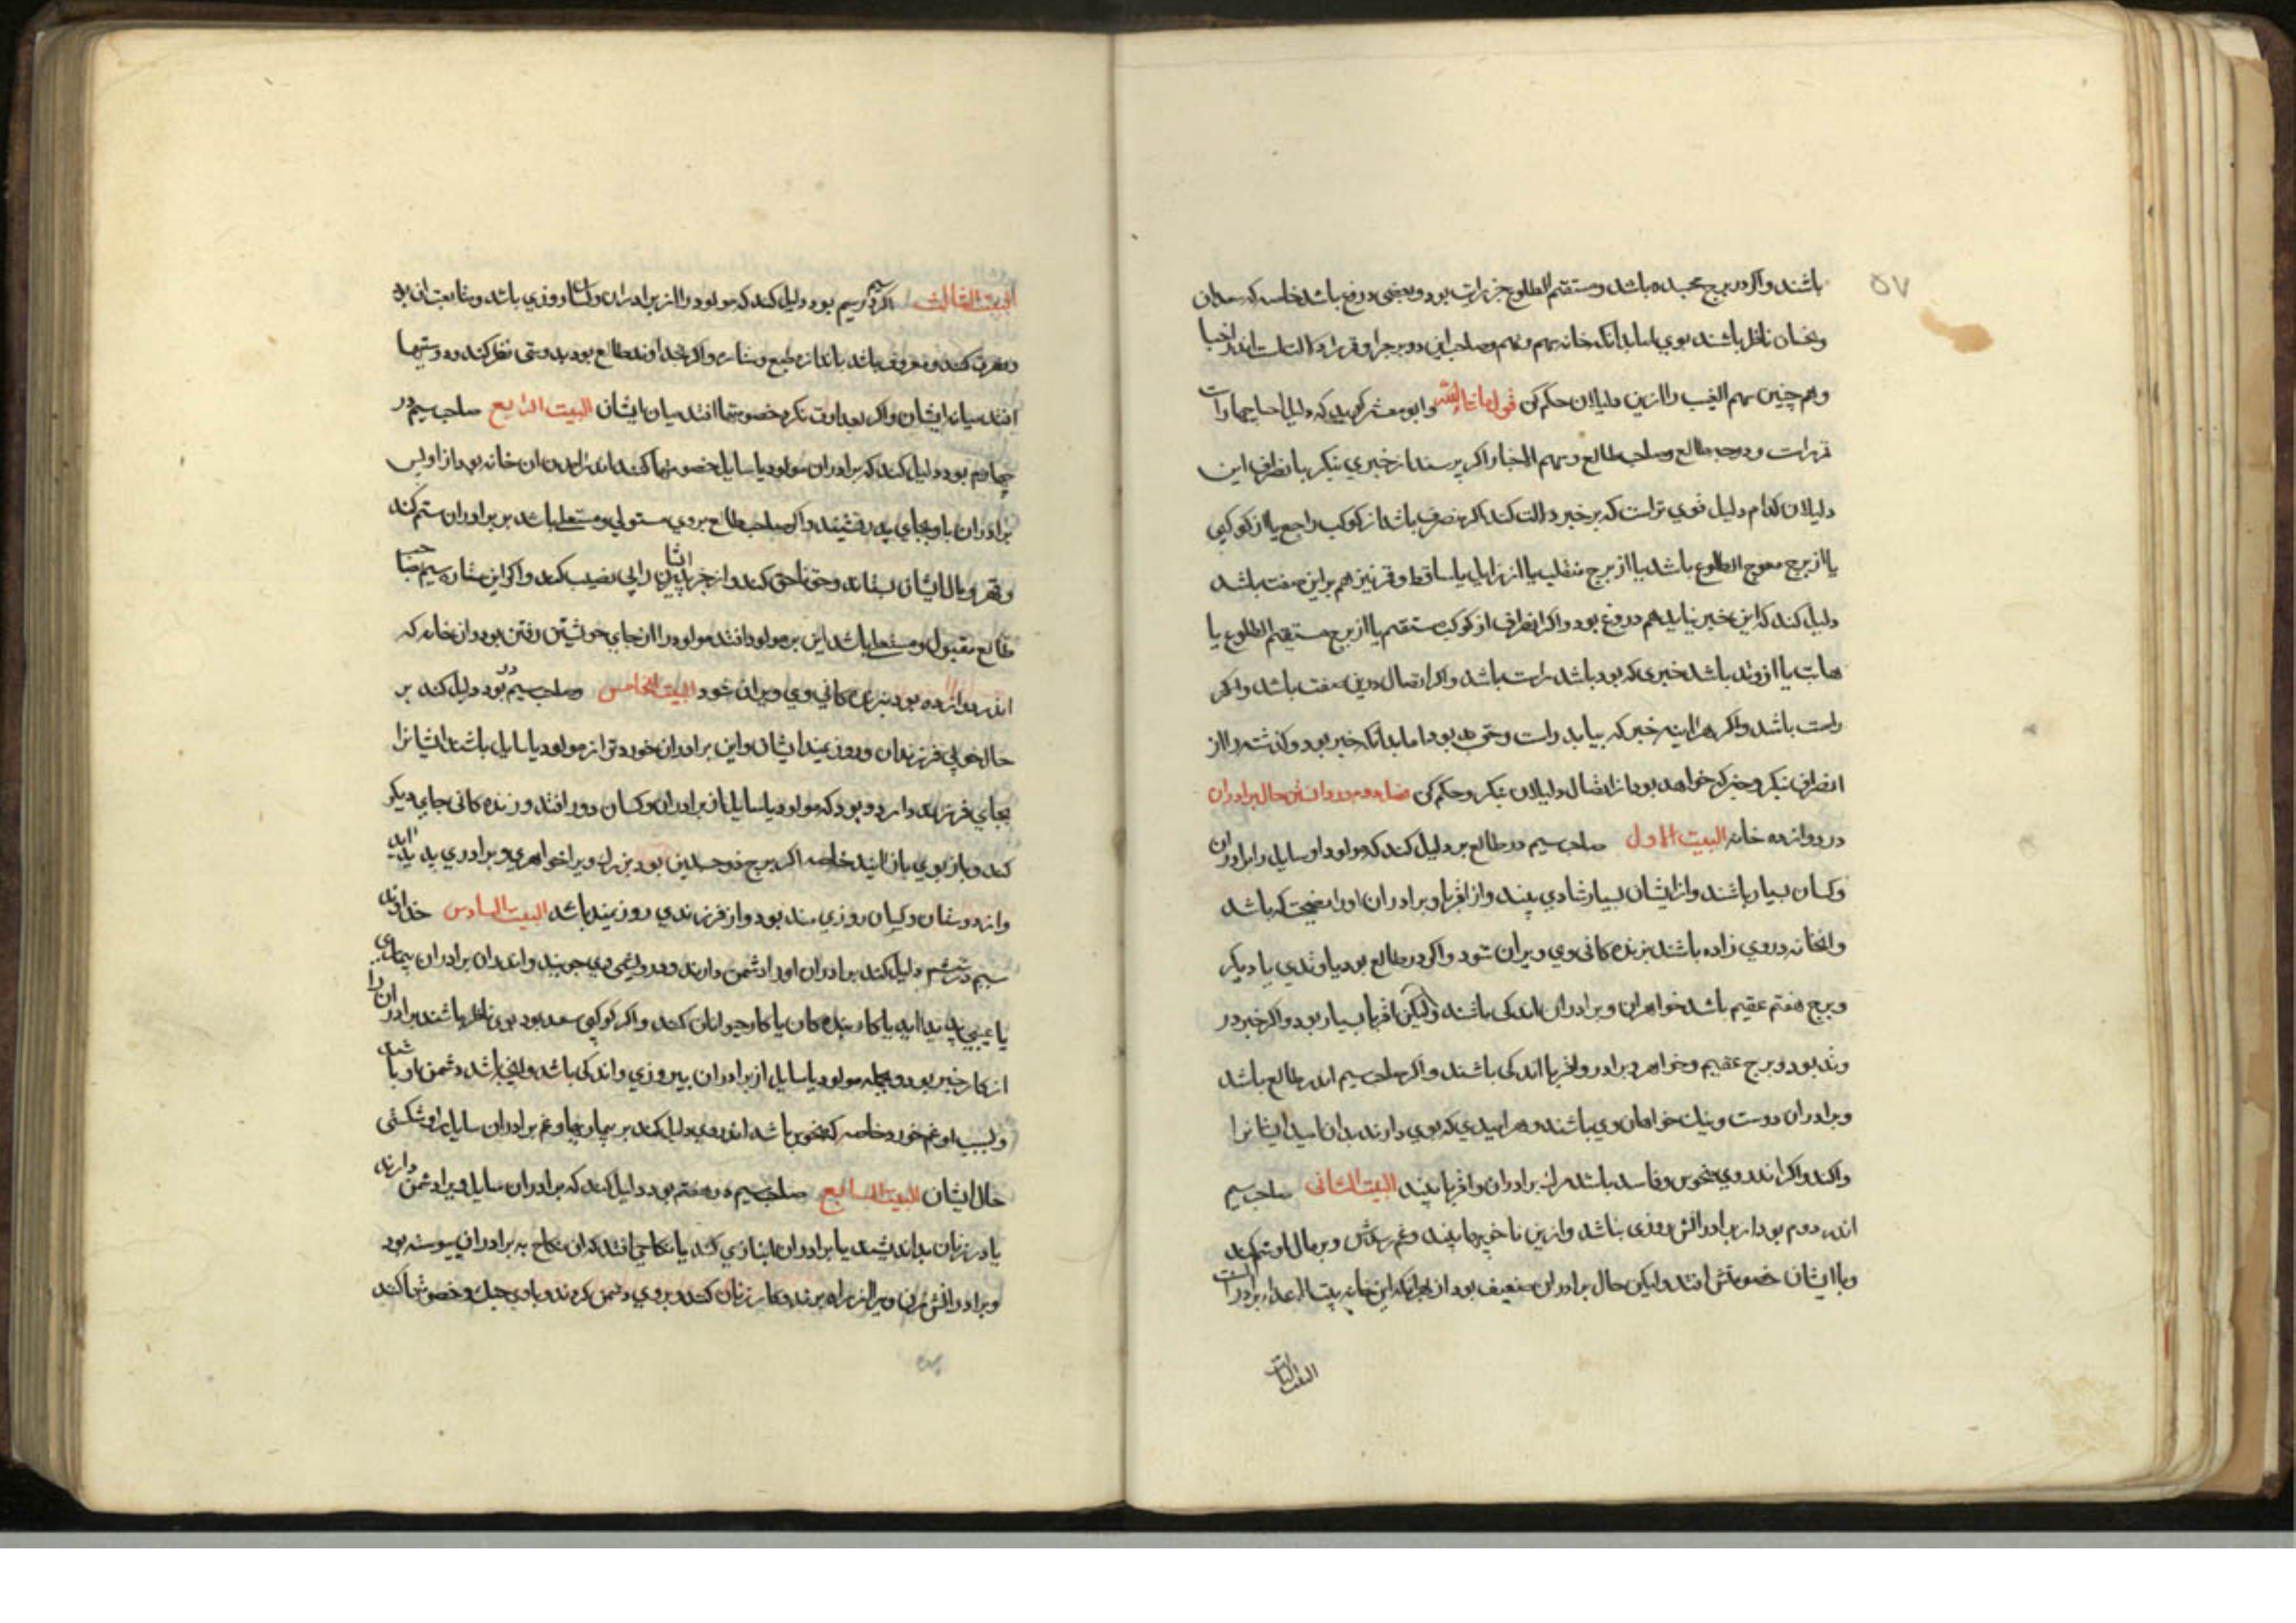 ۵۷
باشند واکر در برج مجسده باشد ومستقیم الطلوع خبر راست بود وبعضی دروغ باشد خاصه که سعدان
ونحسان ناظر باشند بوی اما بدانکه خانه سیم ونهم وصاحب این دو برج را وقمر را دلالتست اندر اخبار
وهم چنین سهم الغیب را ازین دلیلان حکم کن قول ماشاءالله وابو معشر کوید که دلیل اخبارها راست
قمرست ودرجه طالع وصاحب طالع وسهم الاخبار اکر پرسند از خبری بنکر بانصراف این
دلیلان کدام دلیل قوی ترست که بر خبر دلالت کند اکر منصرف باشد از کوکب راجع یا از کوکبی
یا از برج معوج الطلوع باشد یا از برج منقلب یا از زایل یا ساقط وقمر نیز هم برین صفت باشد
دلیل کند که این خبر نیاید هم دروغ بود واکر انصراف از کوکب مستقیم یا از برج مستقیم الطلوع یا
ثابت یا از وتد باشد خبری که بود باشد راست باشد واکر اتصال برین صفت باشد واکر
راست باشد واکر هراینه خبر که بیاید راست وحق بود اما بدانکه خبر بود وکذشته را از
انصراف بنکر وخبر که خواهد بود از اتصال دلیلان بنکر وحکم کن فصل دوم در دانستن حال برادران
در دوازده خانه البیت الاول صاحب سیم در طالع بر دلیل کند که مولود اوسایل را برادران
وکسان بسیار باشند واز ایشان بسیار شادی بیند واز اقربا وبرادران او را نصیحت کر باشد
وانخانه دروی زاده باشند بزندکانی وی ویران شود واکر در طالع بود یا وتدی یا دیکر
وبرج هفتم عقیم باشد خواهران وبرادران اندکی باشند ولیکن اقربا بسیار بود واکر خبر در
وتد بود وبرج عقیم وخواهر وبرادر واقربا اندکی باشند واکر صاحب سیم اندر طالع باشد
وبرادران دوست ونیک خواهان وی باشند وهر امیدی که بوی دارند بدان امید ایشانرا
واکند واکر اندر وی منحوس وفاسد باشد مرک برادران واقربا بیند البیت الثانی صاحب سیم
اندر دوم بود از برادرانش روزی نباشد وازین ناخوبیها بیند وغم رسدش وبر مال او ستم کنند
وبا ایشان خصومتش افتد ولیکن حال برادران ضعیف بود از بهر انکه این خانه بیت الاعداء برادرانست
البیت الثالث
البیت الثالث اکر در سیم بود دلیل کند که مولود را از برادران وکسان روزی باشد ومتابعت ان بود
ومعرفت کنند ومعروف باشد باندازه طبع وستاره واکر خداوند طالع بود بدوستی نظر کند دوستیها
افتد میان ایشان واکر بعداوت نکرد خصومتها افتد میان ایشان البیت الرابع صاحب سیم در
چهارم بود دلیل کند که برادران مولود یا سایل خصومتها کنند اندر امدن ان خانه بود از اولیس
برادران با وبجای پدر نشیند واکر صاحب طالع بروی مستولی ومستعلی باشد بر برادران ستم کند
وقهر ومال ایشان بستاند وحق ناحق کند واز خیر ایشان را بی نصیب کند واکر این ستاره سیم صاحب
طالع مقبول ومستعلی باشد این بر مولود افتد مولود را از جای خویشتن رفتن بود وان خانه که
اندر وی زاده بود بزندکانی وی ویران شود البیت الخامس وصاحب سیم در ه بود دلیل کند بر
حال خوبی فرزندان وروزیمند ایشان واین برادران خورد تر از مولود یا سایل باشند ایشانرا
بجای فرزند دارد وبود که مولود یا سایل از برادران وکسان دور افتد وزندکانی جای دیکر
کند وباز بوی بازایند خاصه اکر برج ذوجسدین بود نیز او را خواهری وبرادری پدید اید
واز دوستان وکسان روزی مند بود واز فرزندی روزیمند باشد البیت السادس خداوند
سیم در ششم دلیل کند برادران او را دشمن دارند ودرویشی وی جویند واندران برادران بیماری
یا عیبی پدید اید یا کار بندکان یا کار حیوانان کند واکر کوکبی سعد بود بوی ناظر باشند برادران را
از کار خبر بود وبجمله مولود یا سایل از برادران بیروزی واندکی باشد ولیکن باشد دشمن او باشد
وبسبب او غم خورد خاصه که منحوس باشد اندر وی دلیل کند بر بیماریها وغم برادران سایل را وشکستی
حال ایشان البیت السابع صاحب سیم در هفتم بود دلیل کند که برادران سایل ویرا دشمن دارند
یا در زنان بد اندیشند یا برادران انبازی کند یا نکاحی افتد که ان نکاح به برادران پیوسته بود
وبرادرانش مران ویرا از راه برند وکار زنان کنند وبروی دشمن کردند وباوی جنک وخصومتها کنند